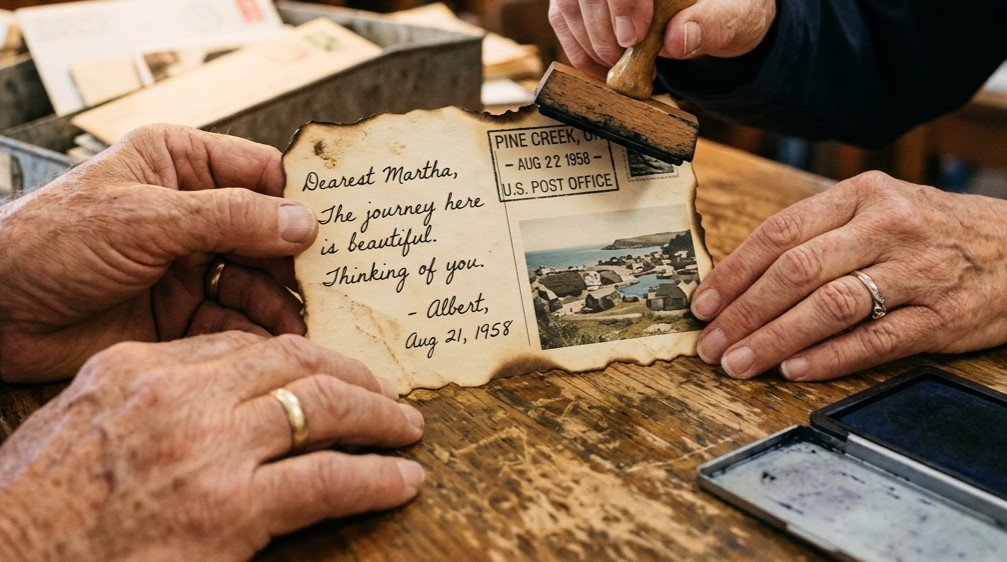 Dearest Martha,
The journey here
is beautiful.
Thinking of you.
- Albert,
Aug 21, 1958
PINE CREEK,
- AUG 22 1958 -
U.S. POST OFFICE